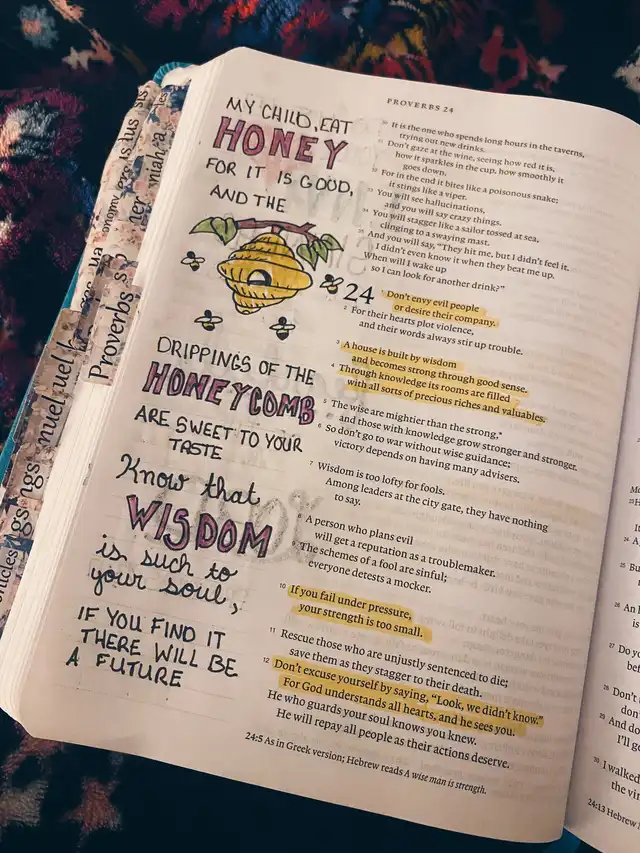 MY CHILD, EAT
HONEY
FOR IT IS GOOD,
AND THE
DRIPPINGS OF THE
HONEYCOMB
ARE SWEET TO YOUR
TASTE
Know that
WISDOM
is such to
your soul,
IF YOU FIND IT
THERE WILL BE
A FUTURE
PROVERBS 24
30 It is the one who spends long hours in the taverns,
trying out new drinks.
31 Don't gaze at the wine, seeing how red it is,
how it sparkles in the cup, how smoothly it
goes down.
32 For in the end it bites like a poisonous snake;
it stings like a viper.
33 You will see hallucinations,
and you will say crazy things.
34 You will stagger like a sailor tossed at sea,
clinging to a swaying mast.
35 And you will say, "They hit me, but I didn't feel it.
I didn't even know it when they beat me up.
When will I wake up
so I can look for another drink?"
24 1 Don't envy evil people
or desire their company.
2 For their hearts plot violence,
and their words always stir up trouble.
3 A house is built by wisdom
and becomes strong through good sense.
4 Through knowledge its rooms are filled
with all sorts of precious riches and valuables.
5 The wise are mightier than the strong,*
and those with knowledge grow stronger and stronger.
6 So don't go to war without wise guidance;
victory depends on having many advisers.
7 Wisdom is too lofty for fools.
Among leaders at the city gate, they have nothing
to say.
8 A person who plans evil
will get a reputation as a troublemaker.
9 The schemes of a fool are sinful;
everyone detests a mocker.
10 If you fail under pressure,
your strength is too small.
11 Rescue those who are unjustly sentenced to die;
save them as they stagger to their death.
12 Don't excuse yourself by saying, "Look, we didn't know."
For God understands all hearts, and he sees you.
He who guards your soul knows you knew.
He will repay all people as their actions deserve.
24:5 As in Greek version; Hebrew reads A wise man is strength.
Proverbs
nuel
uel
ngs
gs
onicles
It
24 A
25 Bu
26 An
is
27 Do yo
bef
28 Don't
don
29 And do
I'll g
30 I walked
the vin
24:13 Hebrew